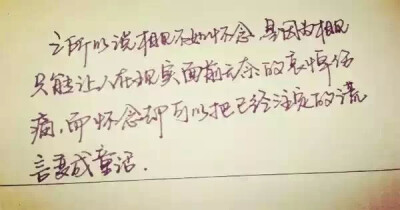 之所以说相见不如怀念,是因为相见
只能让人在现实面前无奈的哀悼伤
痛,而怀念却可以把已经注定的谎
言变成童话.